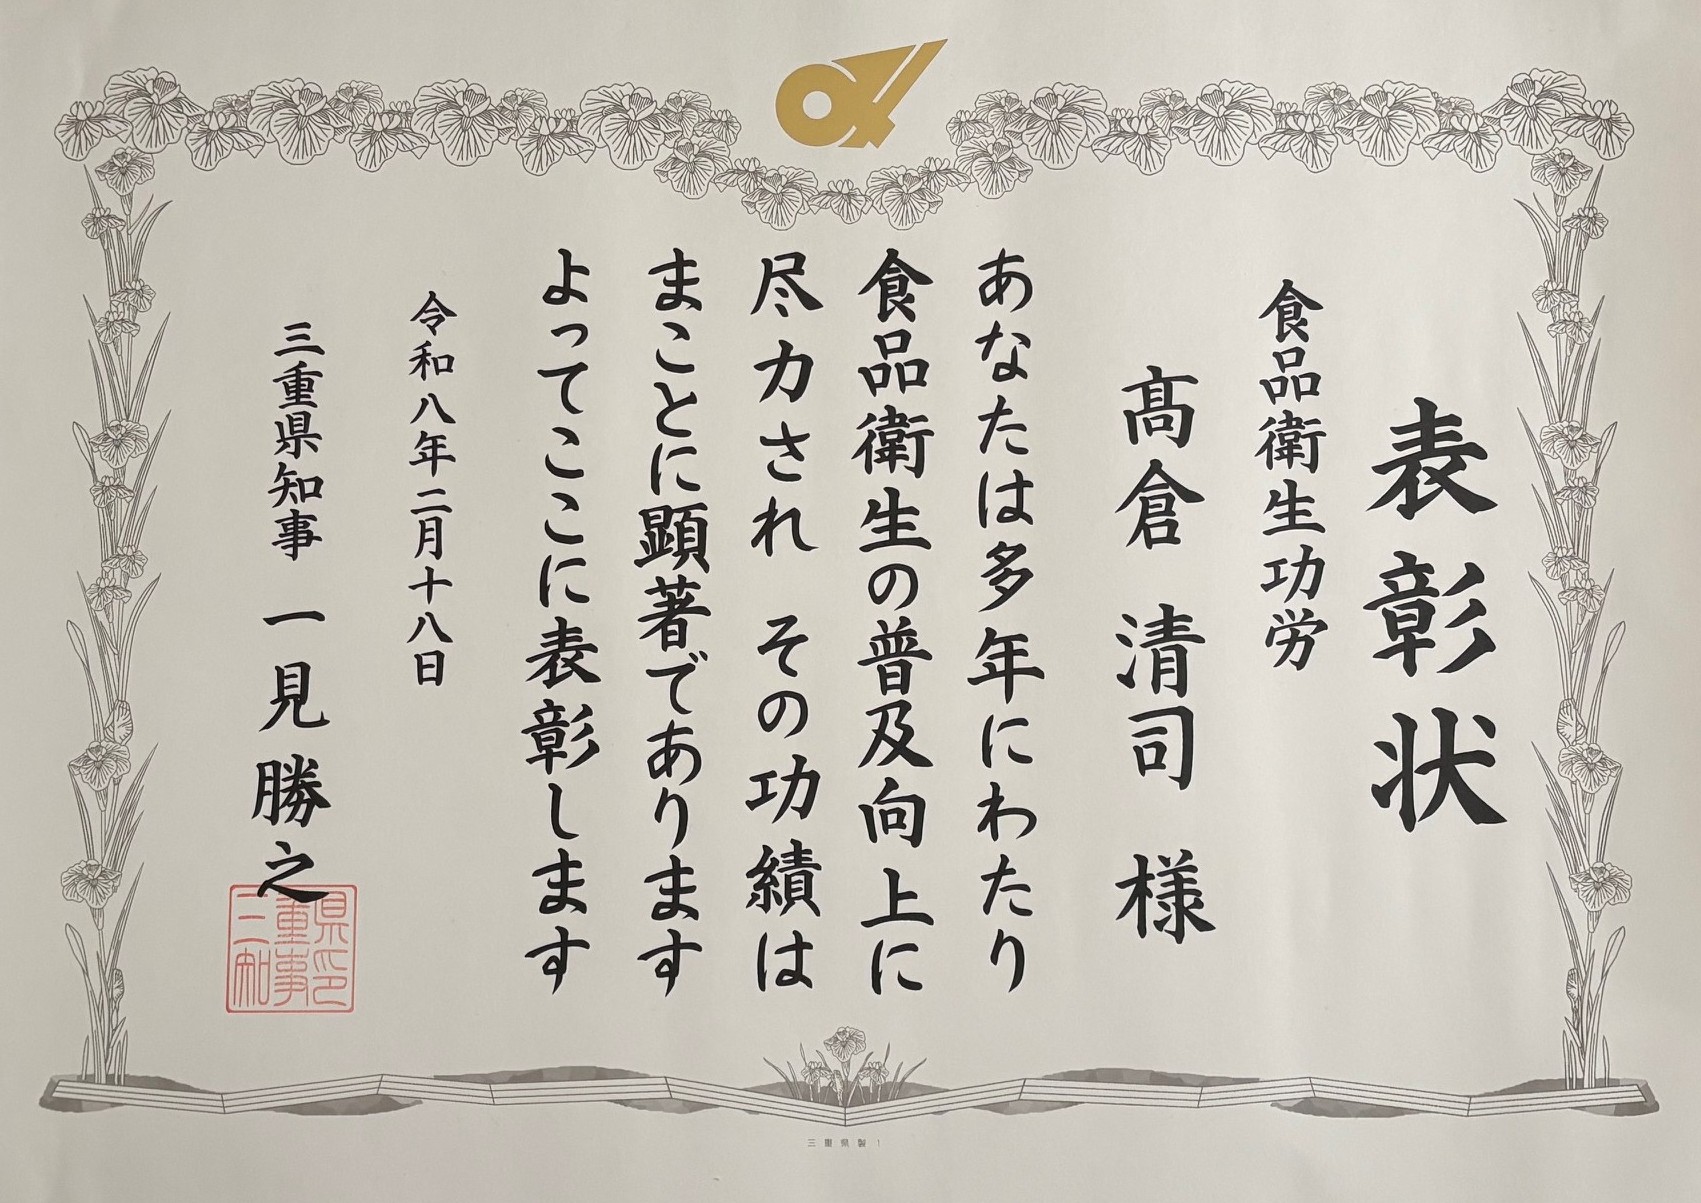 表彰状
食品衛生功労
髙倉 清司 様
あなたは多年にわたり
食品衛生の普及向上に
尽力され その功績は
まことに顕著であります
よってここに表彰します
令和八年二月十八日
三重県知事 一見勝之
三重県知事印
三重県製